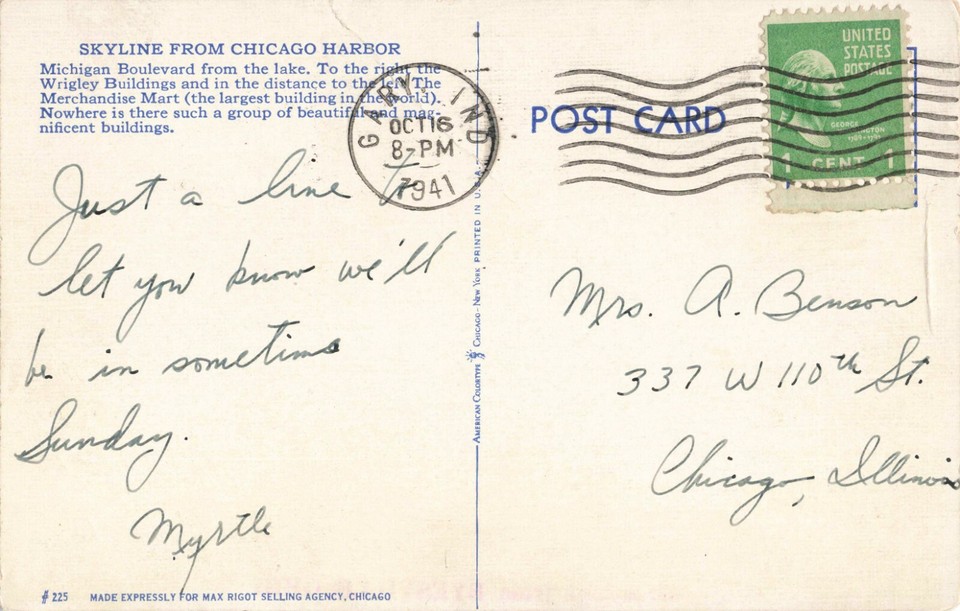 SKYLINE FROM CHICAGO HARBOR
Michigan Boulevard from the lake. To the right the
Wrigley Buildings and in the distance to the left The
Merchandise Mart (the largest building in the world).
Nowhere is there such a group of beautiful and mag-
nificent buildings.
Just a line to
let you know we'll
be in sometime
Sunday.
Myrtle
# 225 MADE EXPRESSLY FOR MAX RIGOT SELLING AGENCY, CHICAGO
GARY, IND
OCT 16
8-PM
1941
AMERICAN COLORTYPE CHICAGO - NEW YORK PRINTED IN U.S.A.
POST CARD
UNITED
STATES
POSTAGE
GEORGE
WASHINGTON
1 CENT 1
Mrs. A. Benson
337 W 110th St.
Chicago, Illinois